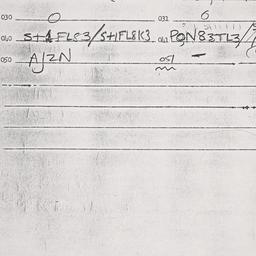 030 0 032 6
040 S+1FL83/S+1FL8K3 041 PQN83TL3/
050 AJ2N 051 -